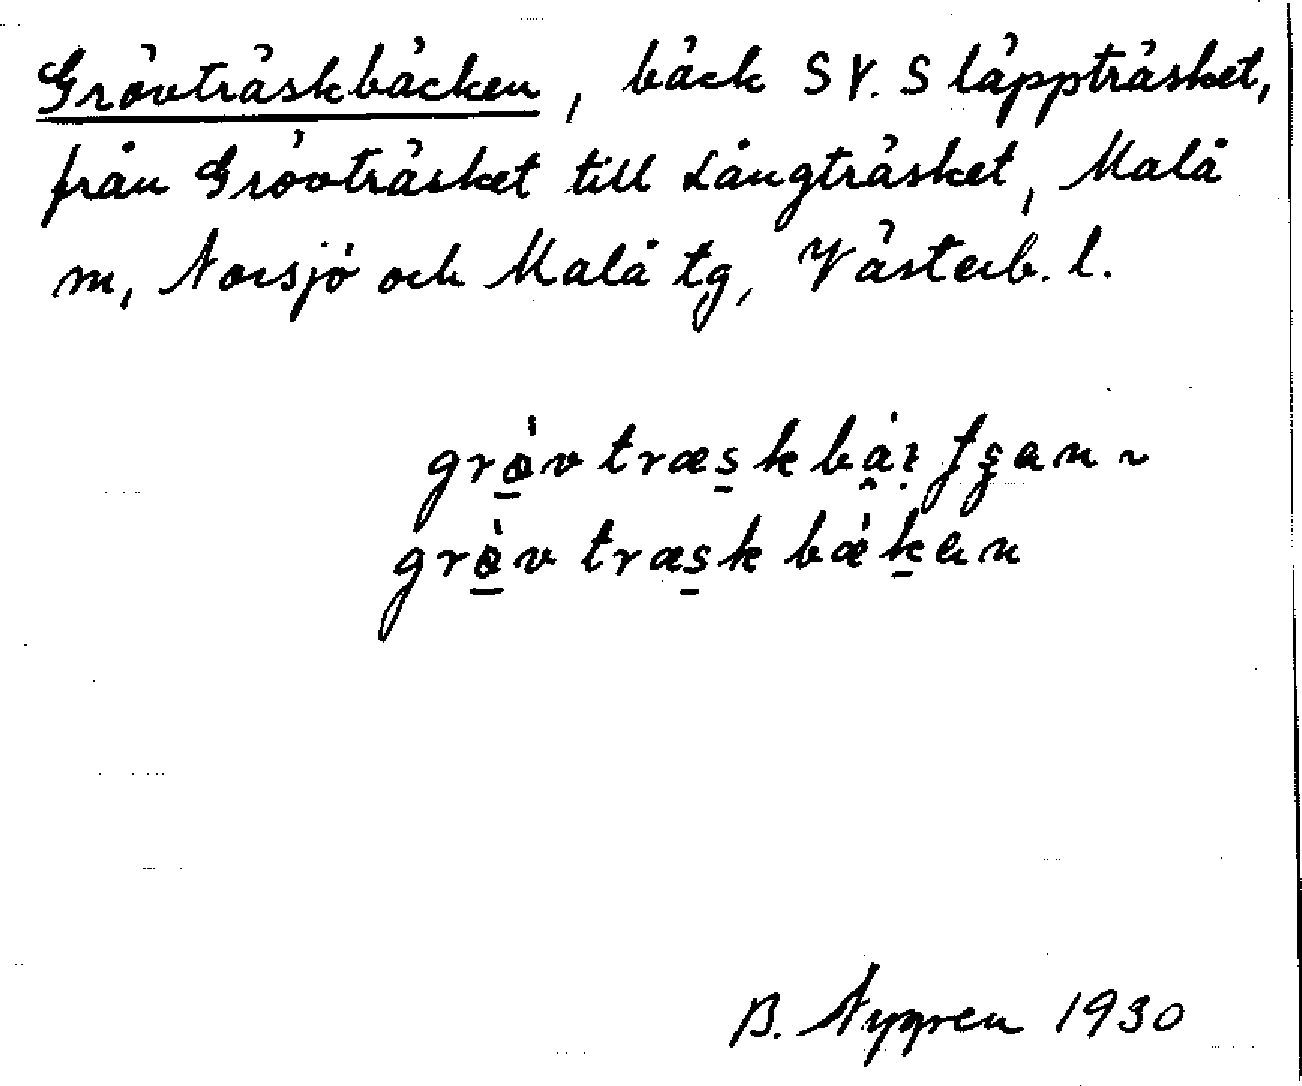 Grövträskbäcken, bäck SV. Släppträsket,
från Grövträsket till Långträsket, Malå
m, Norsjö och Malå tg, Västerb. l.
grövtræskbæken
B. Nygren 1930